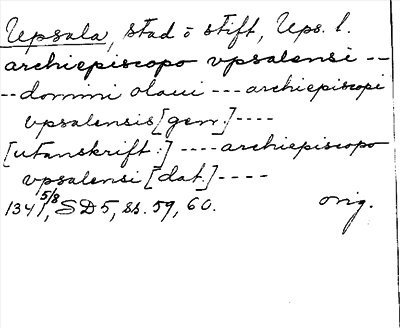 Upsala, stad o stift, Ups. l.
archiepiscopo vpsalensi --
--domini olaui --- archiepiscopi
vpsalensis [gen.] ----
[utanskrift:] ---- archiepiscopo
vpsalensi [dat.] ----
1341 5/8, SD 5, ss. 59, 60. orig.